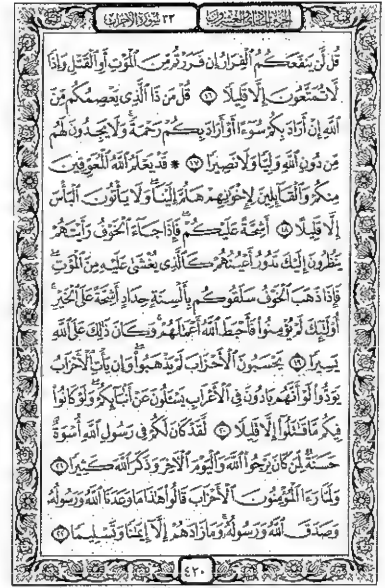 الجزء الحادي والعشرون
٣٣ سورة الأحزاب
قُل لَّن يَنفَعَكُمُ ٱلْفِرَارُ إِن فَرَرْتُم مِّنَ ٱلْمَوْتِ أَوِ ٱلْقَتْلِ وَإِذًا
لَّا تُمَتَّعُونَ إِلَّا قَلِيلًا ١٦ قُلْ مَن ذَا ٱلَّذِى يَعْصِمُكُم مِّنَ
ٱللَّهِ إِنْ أَرَادَ بِكُمْ سُوٓءًا أَوْ أَرَادَ بِكُمْ رَحْمَةً ۚ وَلَا يَجِدُونَ لَهُم
مِّن دُونِ ٱللَّهِ وَلِيًّا وَلَا نَصِيرًا ١٧ * قَدْ يَعْلَمُ ٱللَّهُ ٱلْمُعَوِّقِينَ
مِنكُمْ وَٱلْقَآئِلِينَ لِإِخْوَٰنِهِمْ هَلُمَّ إِلَيْنَا ۖ وَلَا يَأْتُونَ ٱلْبَأْسَ
إِلَّا قَلِيلًا ١٨ أَشِحَّةً عَلَيْكُمْ ۖ فَإِذَا جَآءَ ٱلْخَوْفُ رَأَيْتَهُمْ
يَنظُرُونَ إِلَيْكَ تَدُورُ أَعْيُنُهُمْ كَٱلَّذِى يُغْشَىٰ عَلَيْهِ مِنَ ٱلْمَوْتِ ۖ
فَإِذَا ذَهَبَ ٱلْخَوْفُ سَلَقُوكُم بِأَلْسِنَةٍ حِدَادٍ أَشِحَّةً عَلَى ٱلْخَيْرِ ۚ
أُو۟لَٰٓئِكَ لَمْ يُؤْمِنُوا۟ فَأَحْبَطَ ٱللَّهُ أَعْمَٰلَهُمْ ۚ وَكَانَ ذَٰلِكَ عَلَى ٱللَّهِ
يَسِيرًا ١٩ يَحْسَبُونَ ٱلْأَحْزَابَ لَمْ يَذْهَبُوا۟ ۖ وَإِن يَأْتِ ٱلْأَحْزَابُ
يَوَدُّوا۟ لَوْ أَنَّهُم بَادُونَ فِى ٱلْأَعْرَابِ يَسْـَٔلُونَ عَنْ أَنۢبَآئِكُمْ ۖ وَلَوْ كَانُوا۟
فِيكُم مَّا قَٰتَلُوٓا۟ إِلَّا قَلِيلًا ٢٠ لَّقَدْ كَانَ لَكُمْ فِى رَسُولِ ٱللَّهِ أُسْوَةٌ
حَسَنَةٌ لِّمَن كَانَ يَرْجُوا۟ ٱللَّهَ وَٱلْيَوْمَ ٱلْـَٔاخِرَ وَذَكَرَ ٱللَّهَ كَثِيرًا ٢١
وَلَمَّا رَءَا ٱلْمُؤْمِنُونَ ٱلْأَحْزَابَ قَالُوا۟ هَٰذَا مَا وَعَدَنَا ٱللَّهُ وَرَسُولُهُۥ
وَصَدَقَ ٱللَّهُ وَرَسُولُهُۥ ۚ وَمَا زَادَهُمْ إِلَّآ إِيمَٰنًا وَتَسْلِيمًا ٢٢
٤٢٠